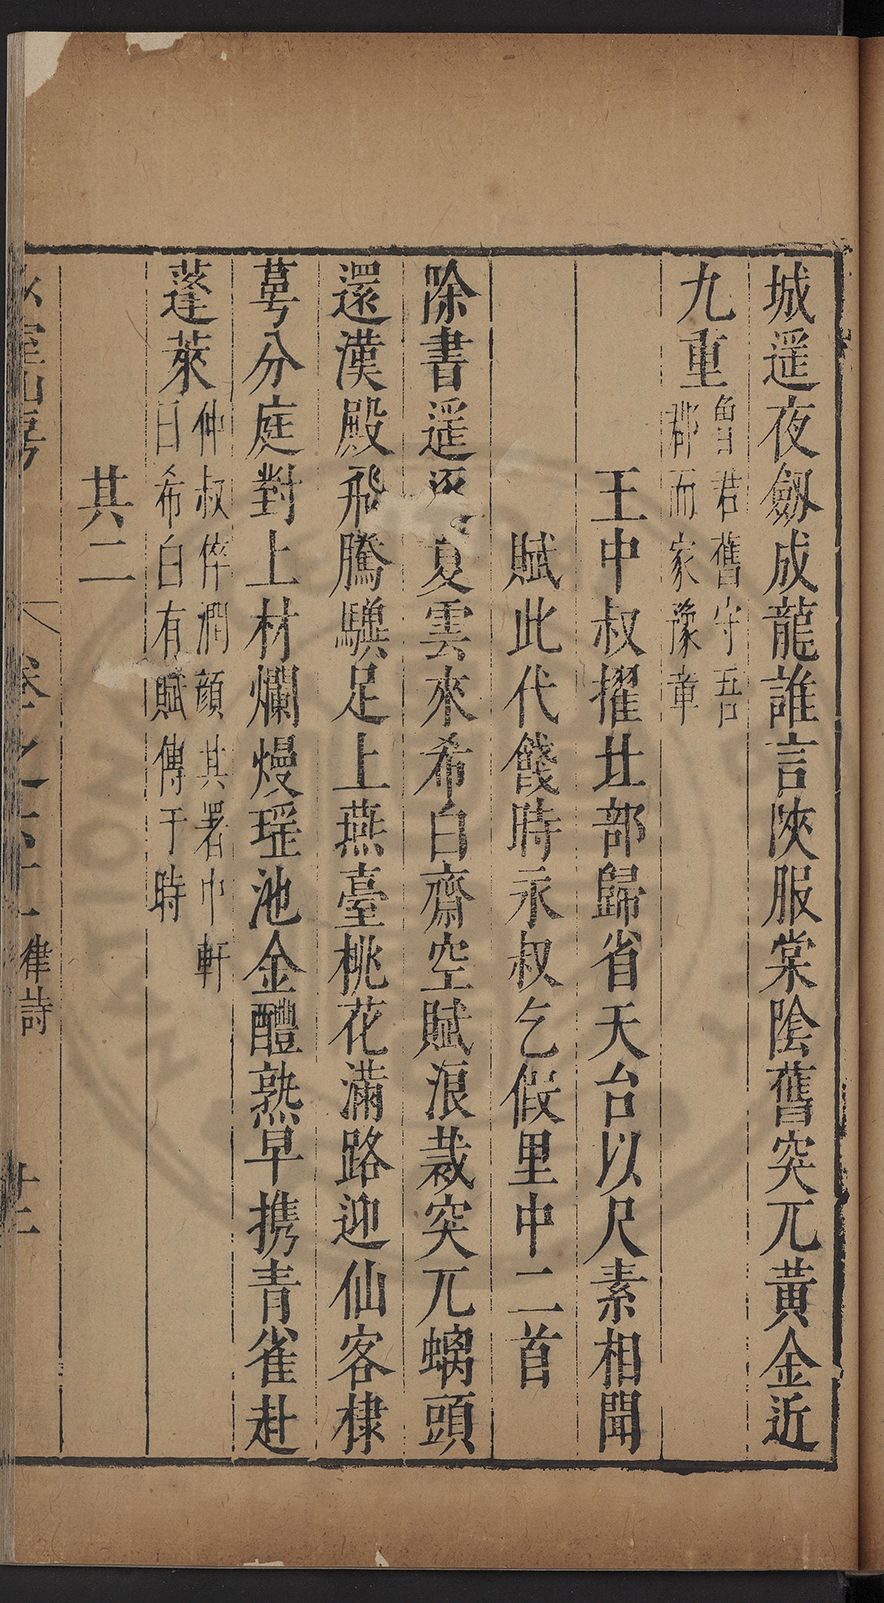 城遥夜劔成龍誰言陜服棠陰舊突兀黃金近
九重
魯君舊守吾
郡而家豫章
王中叔擢比部歸省天台以尺素相聞
賦此代餞時永叔乞假里中二首
除書遥 夏雲來希白齋空賦浪裁突兀螭頭
還漢殿飛騰驥足上燕臺桃花滿路迎仙客棣
萼分庭對上材爛熳瑶池金醴熟早携青雀赴
蓬萊
仲叔倅潤顔其署巾軒
曰希白有賦傳于時
其二
卷之 律詩